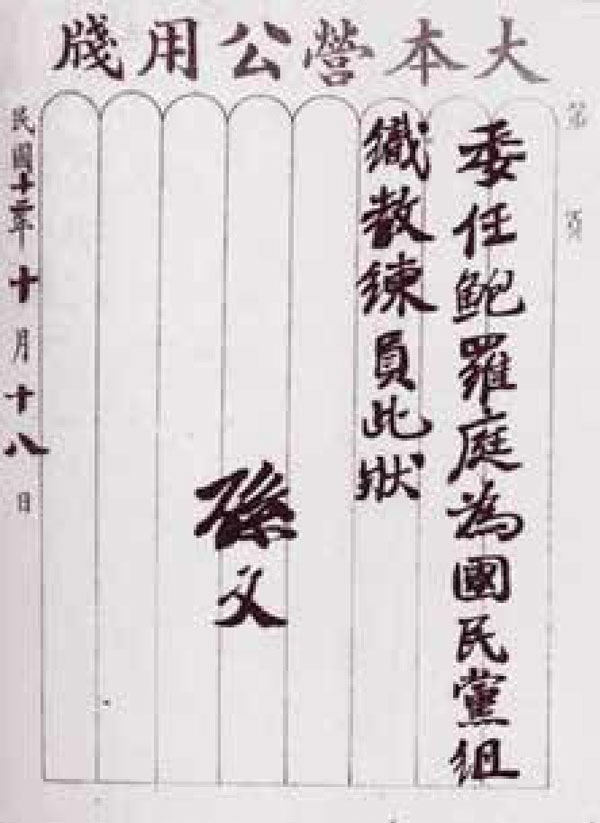 大本營公用牋
第　頁
委任鮑羅庭為國民黨組
織教練員此狀
孫文
民國十二年十月十八日